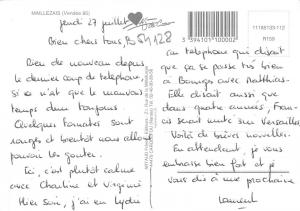 MAILLEZAIS (Vendée 85)
jeudi 27 juillet
Bien chers tous,
Bien de nouveau depuis
le dernier coup de telephone,
si ce n'est que le mauvais
temps dure toujours.
Quelques tomates sont
rouges et bientôt nous allons
pouvoir les gouter.
Ici, c'est plutôt calme
avec Charline et Virginie
Hier soir, j'ai eu Lydie
3 394101 100002
11185133-112
R159
au telephone qui disait
que ça se passe très bien
à Bourges avec Matthias.
Elle disait aussi que
dans quatre années, Fran-
cis serait muté sur Versailles
Voilà de brèves nouvelles.
En attendant, je vous
embrasse bien fort et je
vous dis à une prochaine
Laurent